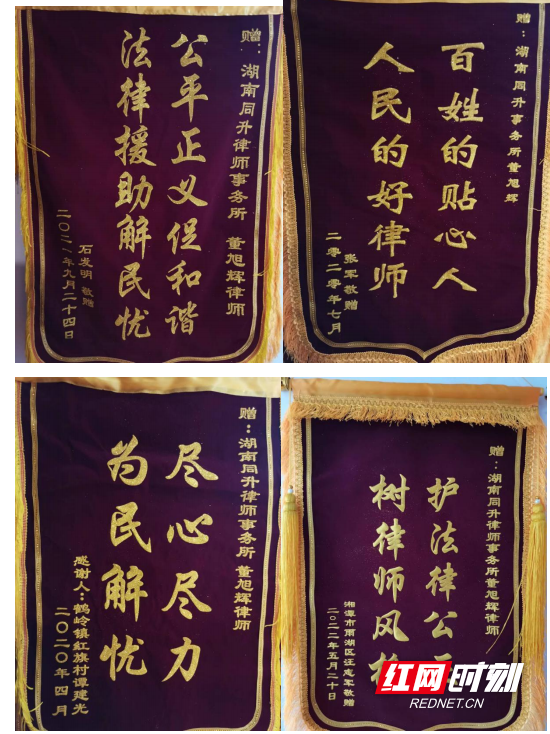 赠：湖南同升律师事务所 董旭辉律师
公平正义促和谐
法律援助解民忧
石发明 敬赠
二〇二一年九月二十四日
赠：湖南同升事务所董旭辉
百姓的贴心人
人民的好律师
张军敬赠
二零二零年七月
赠：湖南同升律师事务所 董旭辉律师
尽心尽力
为民解忧
感谢人：鹤岭镇红旗村谭建光
二〇二〇年四月
赠：湖南同升律师事务所董旭辉律师
护法律公
树律师风
湘潭市雨湖区汪志军敬赠
二〇二二年五月二十日
红网时刻
REDNET.CN